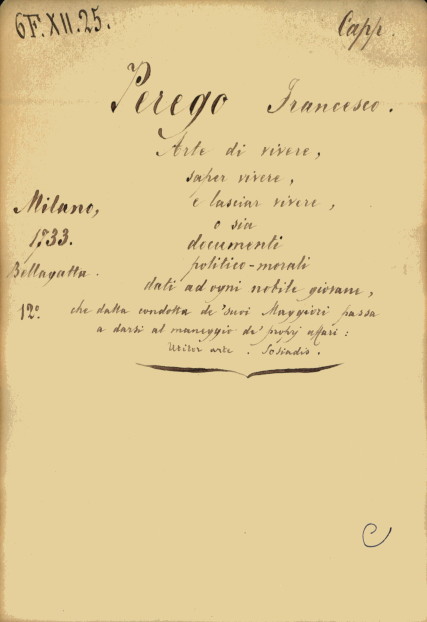 6F.XII.25.
Capp.
Perego Francesco.
Arte di vivere,
saper vivere,
Milano, e lasciar vivere,
o sia
1733. documenti
politico-morali
Bellagatta.
dati ad ogni nobile giovane,
12º. che dalla condotta de' suoi Maggiori passa
a darsi al maneggio de' proprj affari:
Utitor arte. Sosiadis.